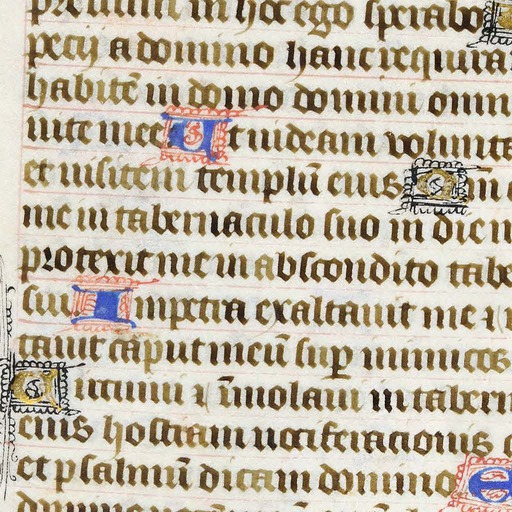 prelium in hoc ego sperabo
petij a domino hanc requira
habitē in domo domini omni
uite mee Ut uideam volunta
et uisitem templū eius
me in tabernaculo suo in die
protexit me in abscondito tabe
sui In petra exaltauit me ⁊
tauit caput meū sup inimicos
Circuiui ⁊ īmolaui in tabern
eius hostiam uociferacionis
et psalmū dicam domino E